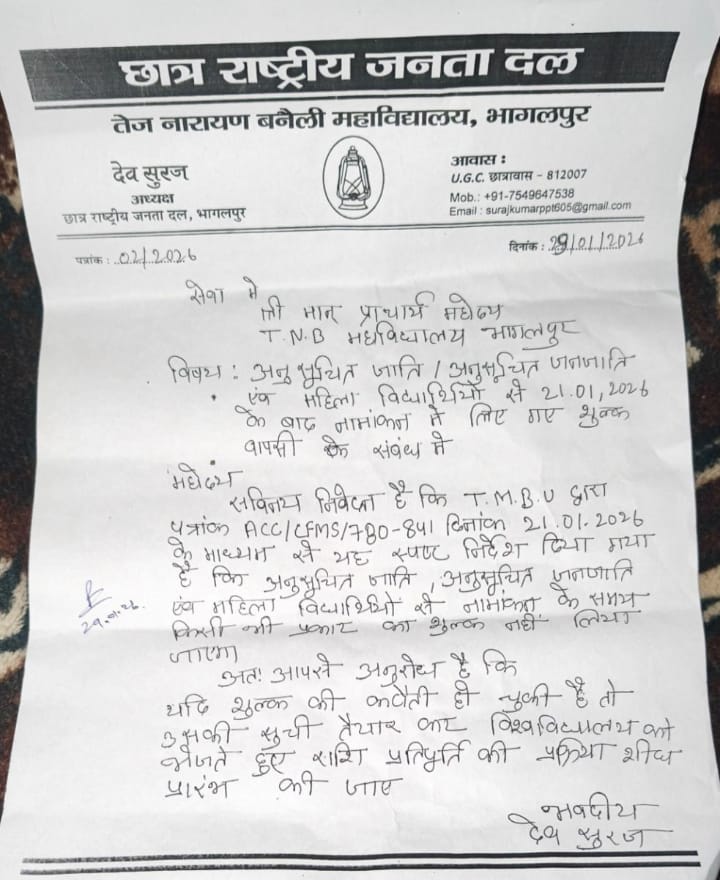 छात्र राष्ट्रीय जनता दल
तेज नारायण बनैली महाविद्यालय, भागलपुर
देव सुरज
अध्यक्ष
छात्र राष्ट्रीय जनता दल, भागलपुर
आवास :
U.G.C. छात्रावास - 812007
Mob.: +91-7549647538
Email : surajkumarppt605@gmail.com
पत्रांक : 02/2026
दिनांक : 29/01/2026
सेवा मे
श्री मान् प्राचार्य महोदय
T.N.B महाविद्यालय भागलपुर
विषय : अनुसूचित जाति / अनुसूचित जनजाति
एंव महिला विद्यार्थियों से 21.01.2026
के बाद नामांकन मे लिए गए शुल्क
वापसी के संबंध मे
महोदय
सविनय निवेदन है कि T.M.B.U द्वारा
पत्रांक ACC/CFMS/780-841 दिनांक 21.01.2026
के माध्यम से यह स्पष्ट निर्देश दिया गया
है कि अनुसूचित जाति, अनुसूचित जनजाति
एंव महिला विद्यार्थियों से नामांकन के समय
किसी भी प्रकार का शुल्क नहीं लिया
जाएगा
29.01.26.
अतः आपसे अनुरोध है कि
यदि शुल्क की कटौती हो चुकी है तो
उसकी सुची तैयार कर विश्वविद्यालय को
भेजते हुए राशि प्रतिपूर्ति की प्रक्रिया शीघ्र
प्रारंभ की जाए
भवदीय
देव सुरज